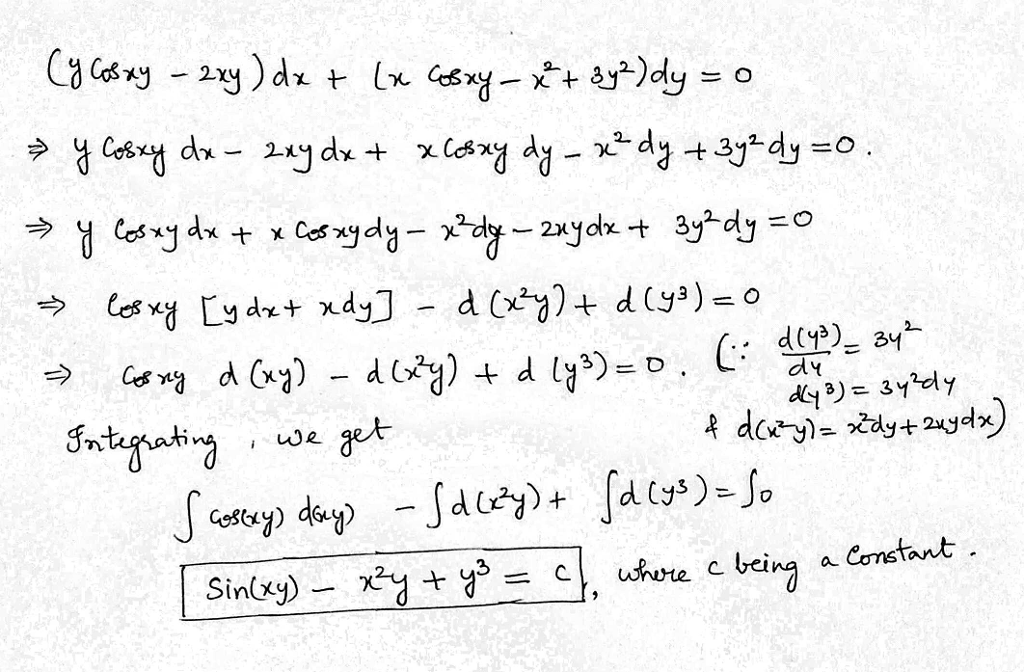 (y Cosxy – 2xy) dx + (x Cosxy – x² + 3y²) dy = 0
⇒ y Cosxy dx – 2xy dx + x Cosxy dy – x² dy + 3y² dy = 0.
⇒ y Cosxy dx + x Cosxy dy – x² dy – 2xy dx + 3y² dy = 0
⇒ Cosxy [y dx + x dy] – d (x²y) + d (y³) = 0
⇒ Cosxy d (xy) – d (x²y) + d (y³) = 0. (∵ d(y³)/dy = 3y²
d(y³) = 3y² dy
Integrating, we get & d(x²y) = x² dy + 2xy dx)
∫ cos(xy) d(xy) – ∫ d (x²y) + ∫ d (y³) = ∫ 0
Sin(xy) – x²y + y³ = c, where c being a Constant.